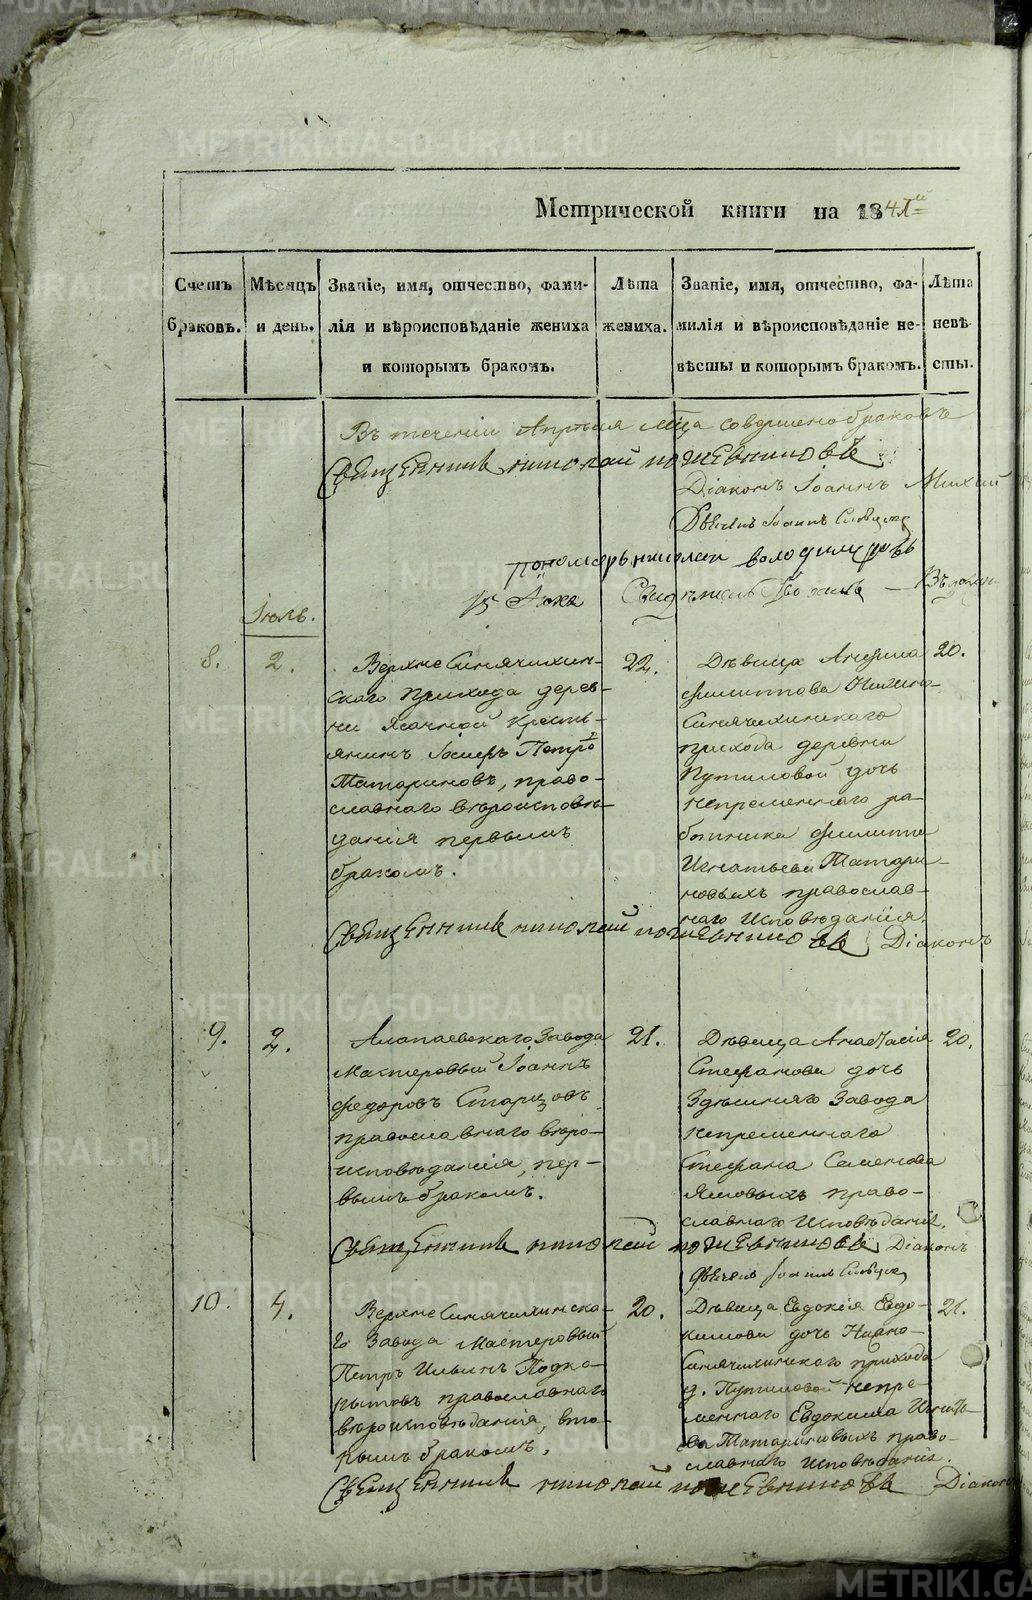 METRIKI.GASO-URAL.RU
Метрической книги на 184
Счетъ браковъ.
Мѣсяцъ и день.
Званіе, имя, отчество, фами-
лія и вѣроисповѣданіе жениха
и которымъ бракомъ.
Лѣта жениха.
Званіе, имя, отчество, фа-
милія и вѣроисповѣданіе не-
вѣсты и которымъ бракомъ.
Лѣта невѣ-
сты.
Въ теченіи Апрѣля мца совершено браковъ
Священникъ николай
Діаконъ Іоаннъ
Іоаннъ
пономарь николай
Іюль.
8.
2.
Верхне Синячихин-
скаго прихода дерев-
ни Ясачной кресть-
янинъ Петро
Татариновъ, право-
славнаго вѣроисповѣ-
данія первымъ
бракомъ.
22.
Дѣвица
филиппова Нижне-
Синячихинскаго
прихода деревни
Путиловой дочь
непременнаго ра-
ботника филиппа
Игнатьева Татари-
новыхъ православ-
наго исповѣданія.
20.
Священникъ николай
Діаконъ
9.
2.
Алапаевскаго Завода
Мастеровый Іоаннъ
федоровъ Старцовъ
православнаго вѣро-
исповѣданія, пер-
вымъ бракомъ.
21.
Дѣвица Анастасія
Стефанова дочь
Здѣшняго Завода
непременнаго
Стефана Семенова
право-
славнаго исповѣданія.
20.
Священникъ николай
Діаконъ
Іоаннъ
10.
4.
Верхне Синячихинска-
го Завода Мастеровый
Петръ Ильинъ Подко-
рытовъ православнаго
вѣроисповѣданія, вто-
рымъ бракомъ.
20.
Дѣвица Евдокія Евдо-
кимова дочь Нижно-
Синячихинскаго прихода
д. Путиловой непре-
меннаго Евдокима Игнать-
ева Татариновыхъ право-
славнаго исповѣданія.
21.
Священникъ николай
Діаконъ